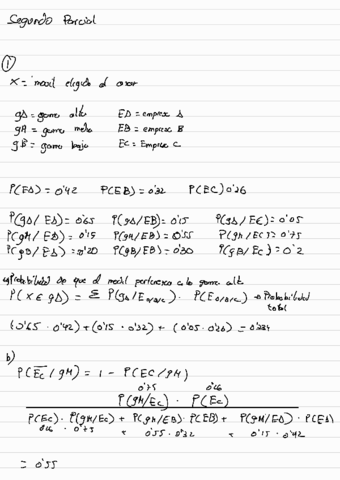 Segundo Parcial
①
X = movil elegido al azar
gA = gama alta   EA = empresa A
gA = gama media   EB = empresa B
gB = gama baja   EC = Empresa C
P(EA) = 0'42   P(EB) = 0'32   P(EC) 0'26
P(gA/EA) = 0'65   P(gA/EB) = 0'15   P(gA/EC) = 0'05
P(gM/EA) = 0'15   P(gM/EB) = 0'55   P(gM/EC) = 0'75
P(gB/EA) = 0'20   P(gB/EB) = 0'30   P(gB/EC) = 0'2
a) Probabilidad de que el movil pertenezca a la gama alta
P(X ∈ gA) = Σ P(gA/E A/B/C) · P(E A/B/C) → Probabilidad
total
(0'65 · 0'42) + (0'15 · 0'32) + (0'05 · 0'26) = 0'334
b)
P(E̅c̅/gM) = 1 - P(EC/gM)
0'75   0'26
P(gM/EC) · P(EC)
P(EC) · P(gM/EC) + P(gM/EB) · P(EB) + P(gM/EA) · P(EA)
0'26 · 0'75 + 0'55 · 0'32 + 0'15 · 0'42
= 0'55